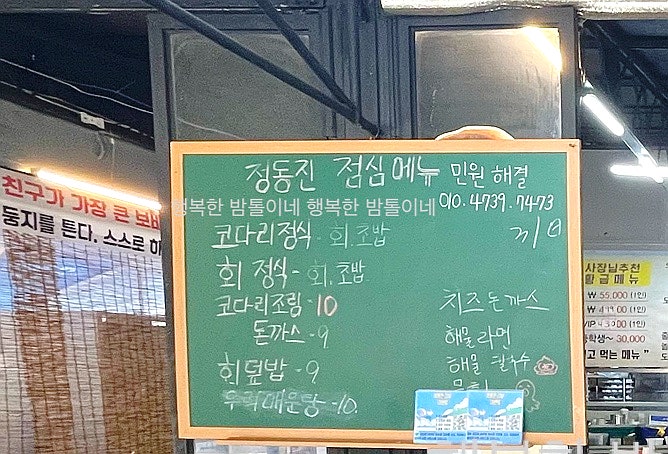 정동진 점심메뉴 민원 해결
010.4739.7473
행복한 밤톨이네 행복한 밤톨이네
코다리정식 - 회.초밥
회 정식 - 회.초밥
코다리조림 - 10
돈까스 - 9
회덮밥 - 9
매운탕 - 10.
치즈돈까스
해물라면
해물
친구가 가장 큰 보
둥지를 튼다. 스스로 하
사장님추천
황급메뉴
₩ 55,000 (1인)
(1인)
VIP (1인)
학생~ 30,000
고 먹는 메뉴"